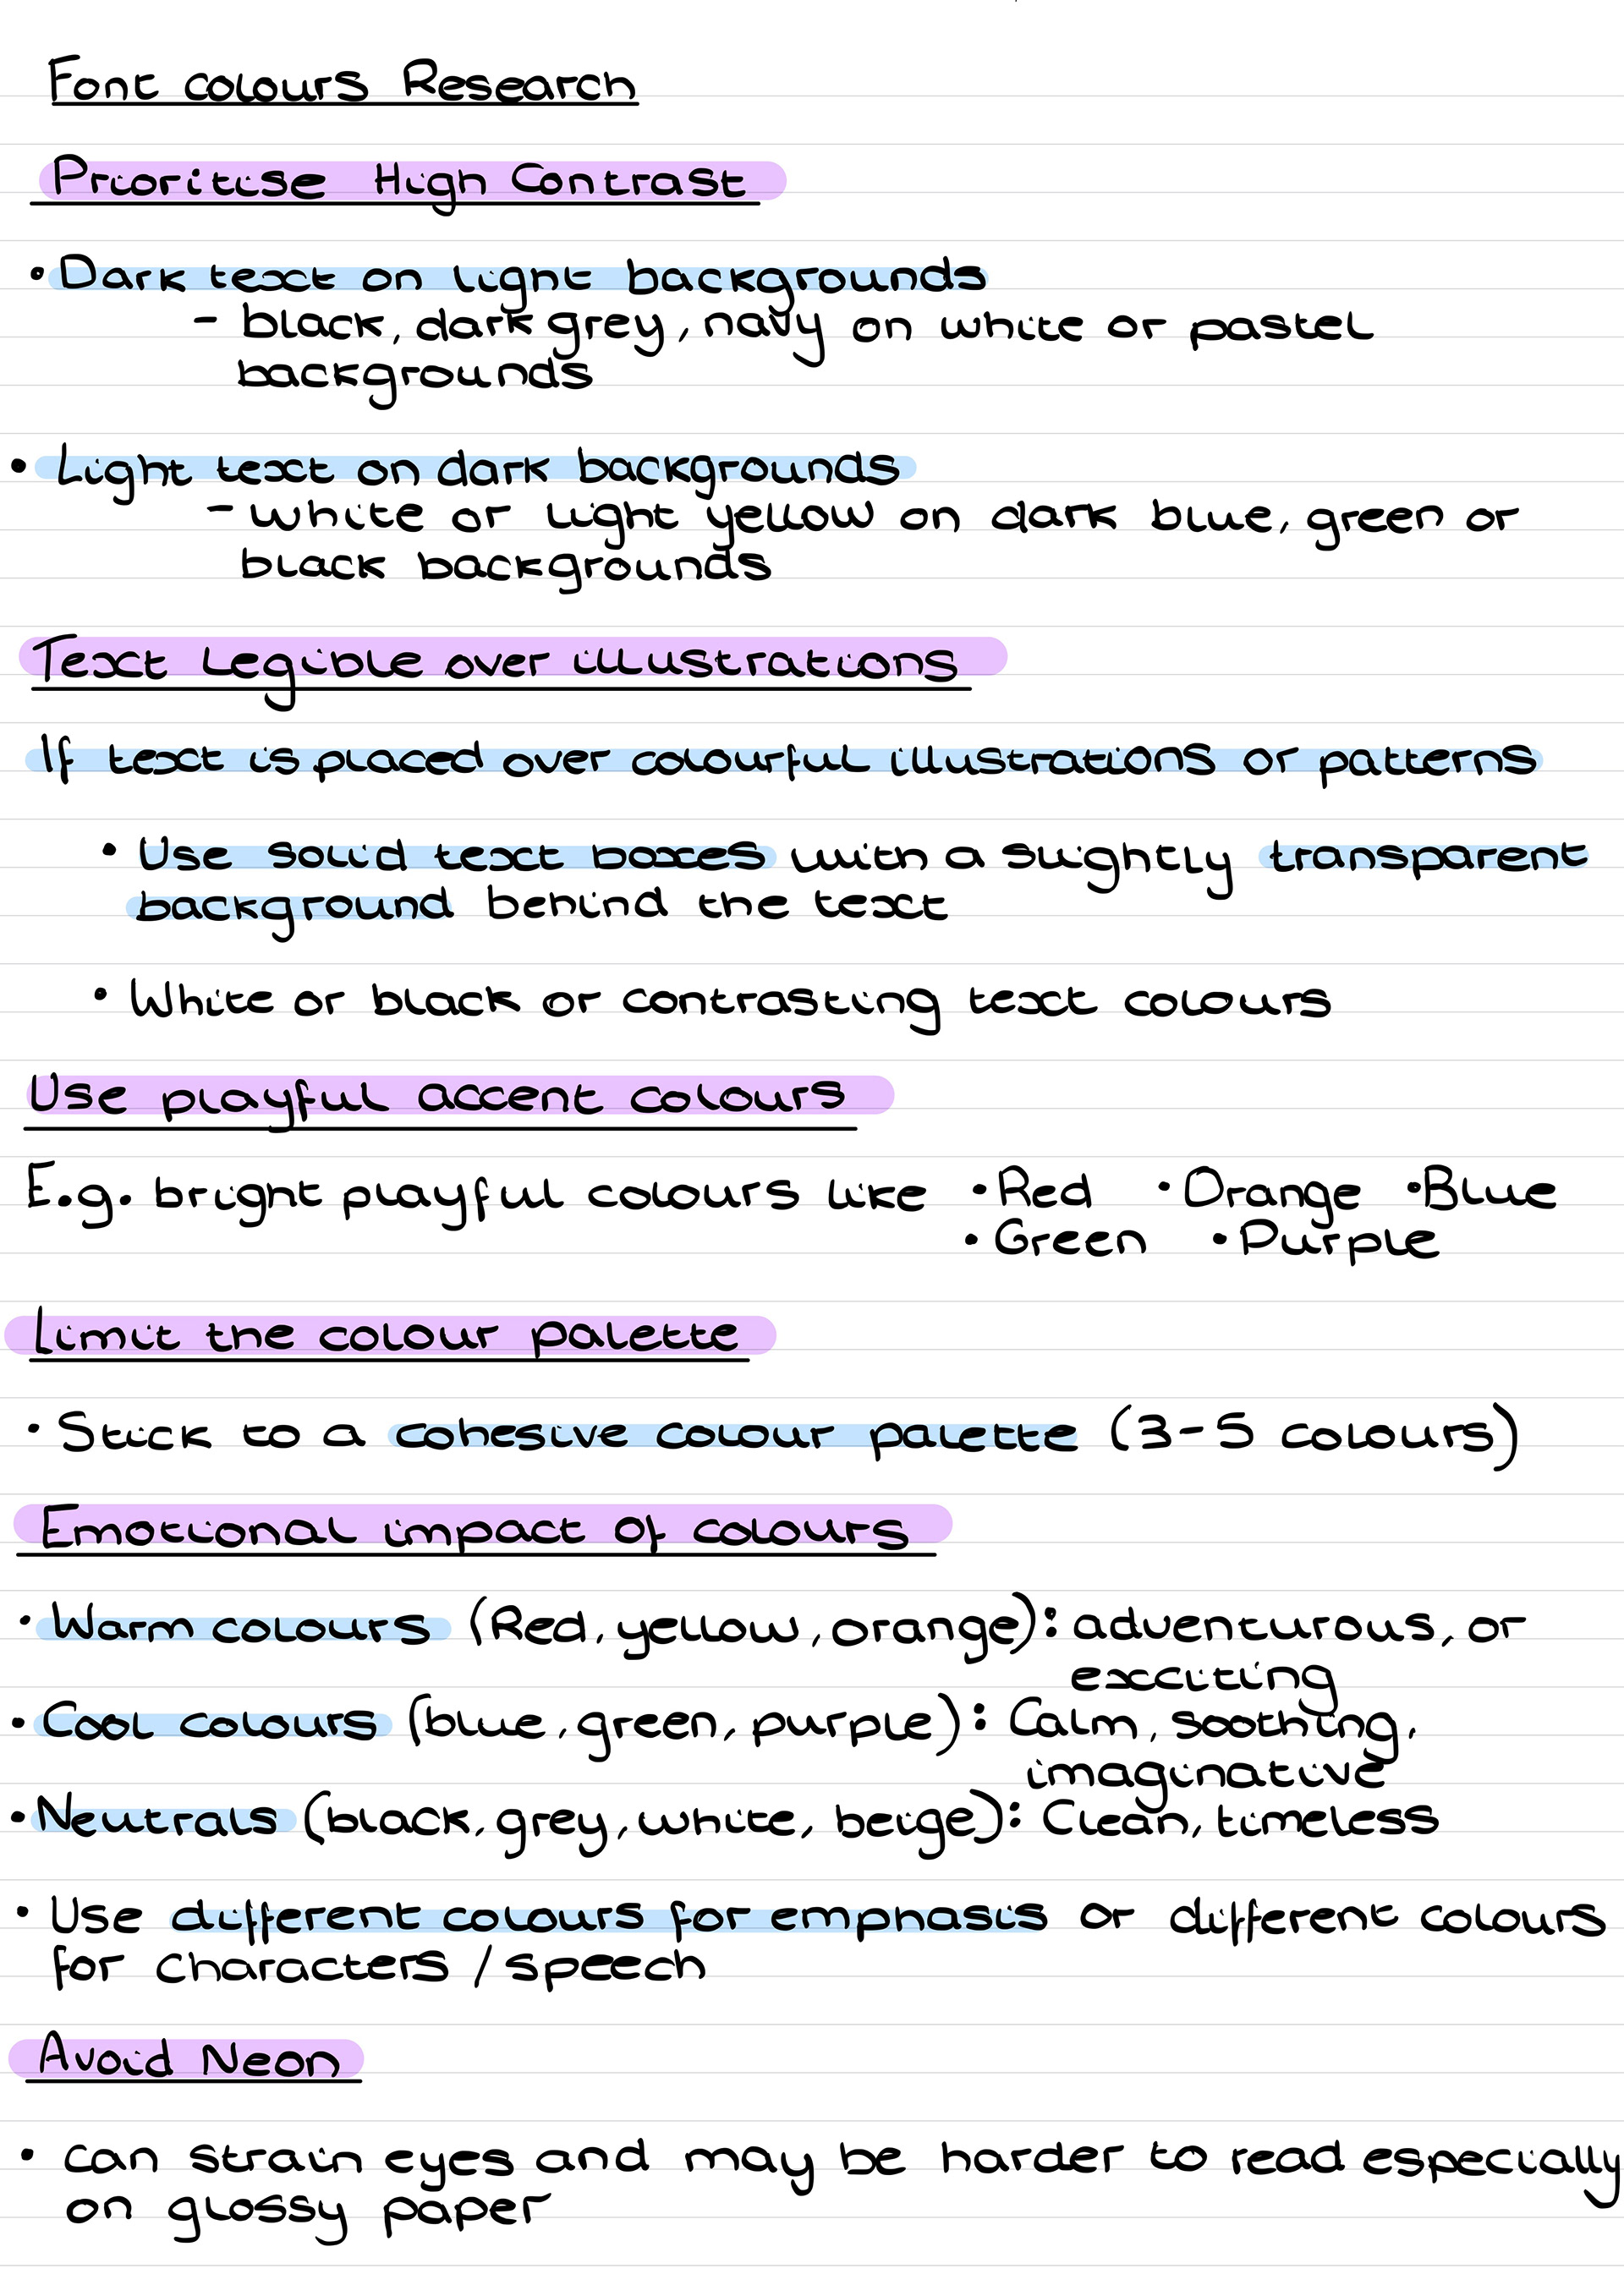 Font colours Research
Prioritise High Contrast
• Dark text on light backgrounds
- black, dark grey, navy on white or pastel
backgrounds
• Light text on dark backgrounds
- white or light yellow on dark blue, green or
black backgrounds
Text legible over illustrations
If text is placed over colourful illustrations or patterns
• Use solid text boxes with a slightly transparent
background behind the text
• White or black or contrasting text colours
Use playful accent colours
E.g. bright playful colours like • Red • Orange • Blue
• Green • Purple
Limit the colour palette
• Stick to a cohesive colour palette (3-5 colours)
Emotional impact of colours
• Warm colours (Red, yellow, orange): adventurous, or
exciting
• Cool colours (blue, green, purple): Calm, soothing,
imaginative
• Neutrals (black, grey, white, beige): Clean, timeless
• Use different colours for emphasis or different colours
for characters / speech
Avoid Neon
• can strain eyes and may be harder to read especially
on glossy paper